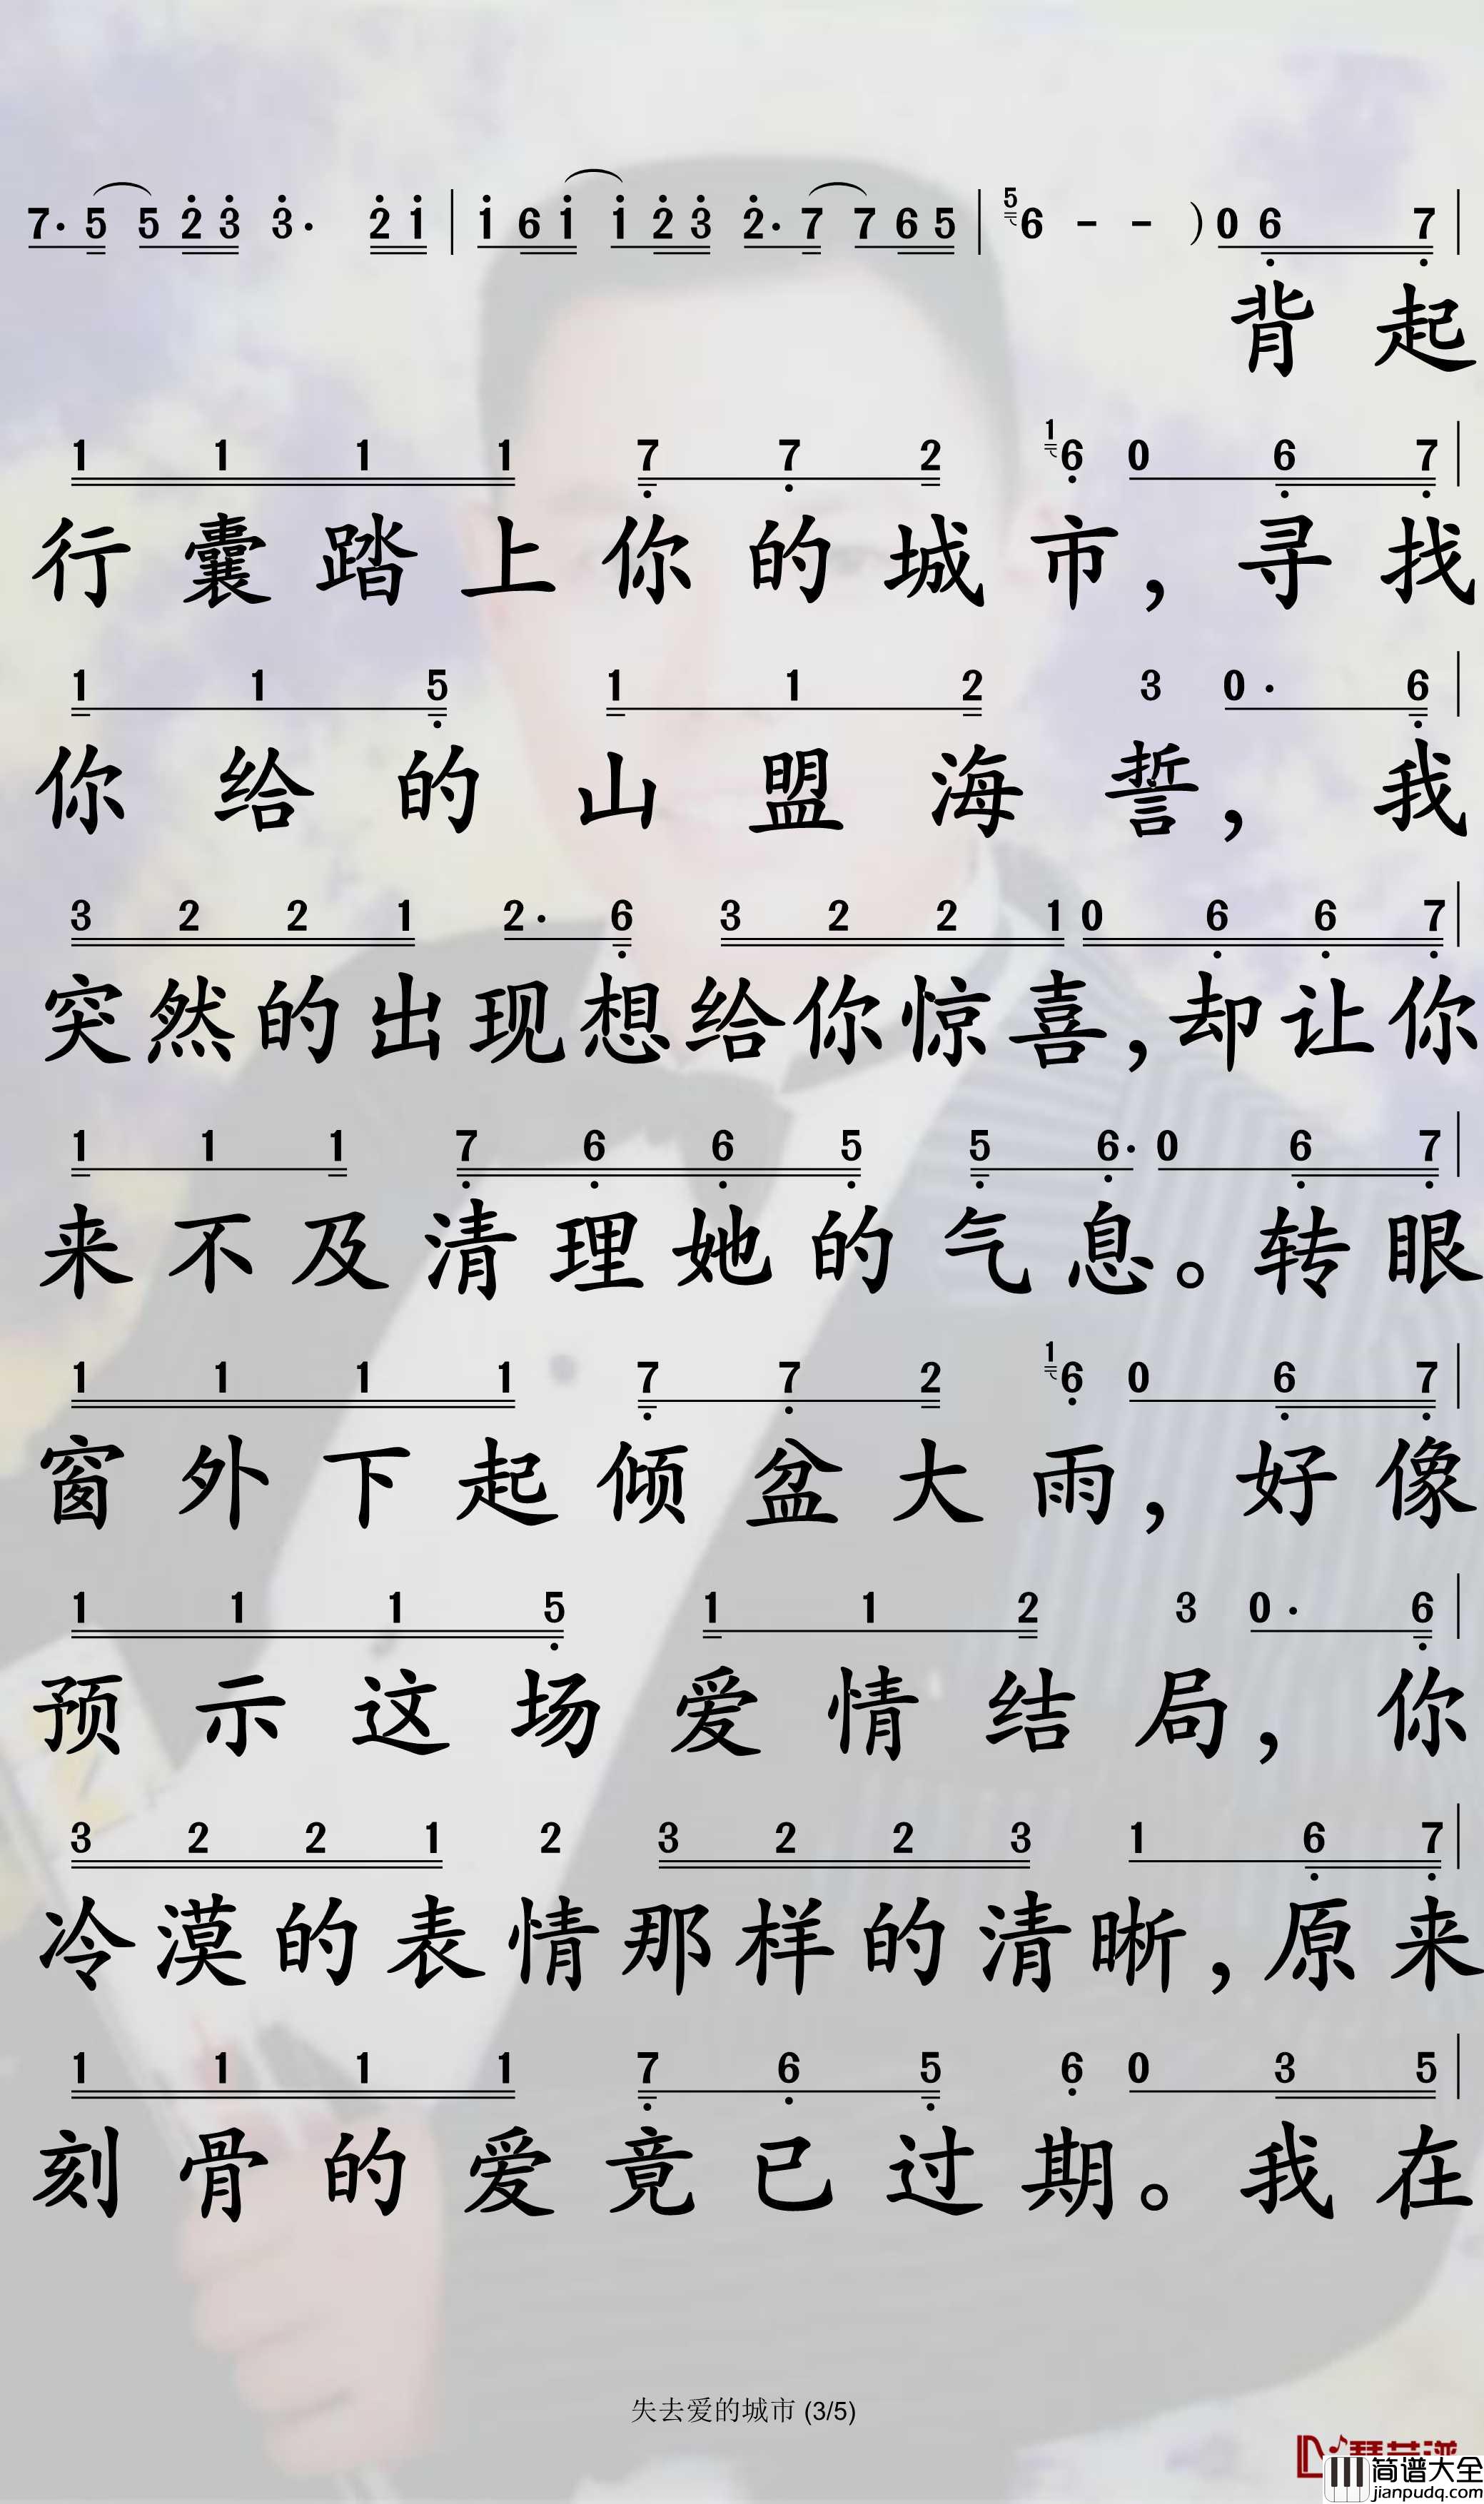 7· 5 5 2 3 3· 2 1 | 1 6 1 1 2 3 2· 7 7 6 5 | 5 6 - - ) 0 6 7 |
背起
1 1 1 1 7 7 2 1 6 0 6 7 |
行囊踏上你的城市，寻找
1 1 5 1 1 2 3 0· 6 |
你给的山盟海誓，我
3 2 2 1 2· 6 3 2 2 1 0 6 6 7 |
突然的出现想给你惊喜，却让你
1 1 1 7 6 6 5 5 6· 0 6 7 |
来不及清理她的气息。转眼
1 1 1 1 7 7 2 1 6 0 6 7 |
窗外下起倾盆大雨，好像
1 1 1 5 1 1 2 3 0· 6 |
预示这场爱情结局，你
3 2 2 1 2 3 2 2 3 1 6 7 |
冷漠的表情那样的清晰，原来
1 1 1 1 7 6 5 6 0 3 5 |
刻骨的爱竟已过期。我在
失去爱的城市 (3/5)
简谱大全
jianpudq.com